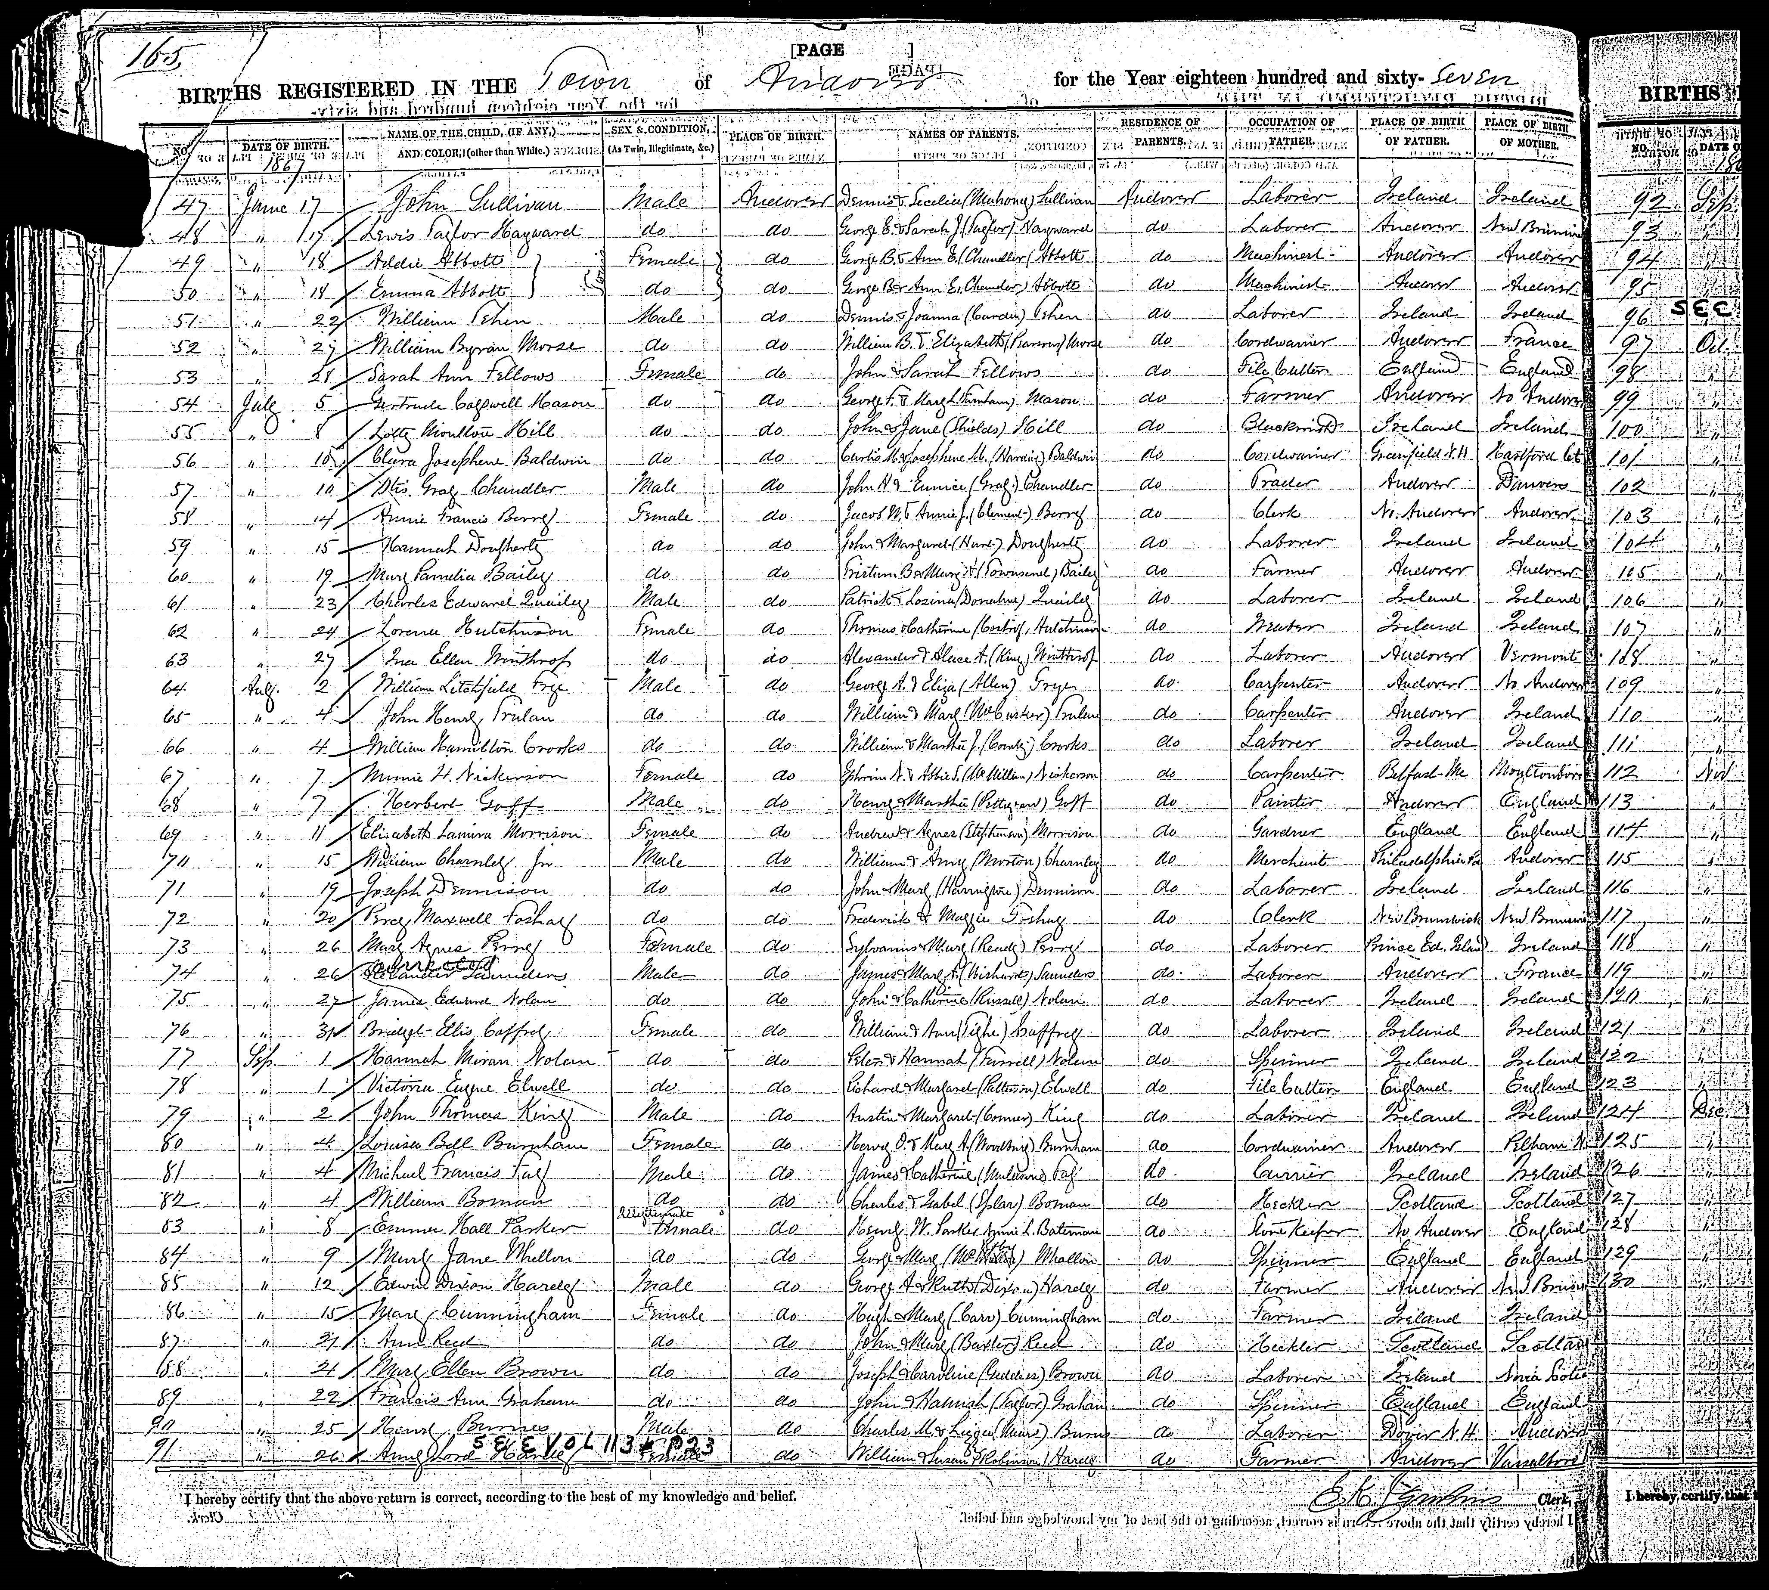 165
[PAGE ]
BIRTHS REGISTERED IN THE Town of Andover for the Year eighteen hundred and sixty-Seven
NO. DATE OF BIRTH. NAME OF THE CHILD, (IF ANY,) SEX & CONDITION, PLACE OF BIRTH. NAMES OF PARENTS. RESIDENCE OF OCCUPATION OF PLACE OF BIRTH PLACE OF BIRTH
1867 AND COLOR, (other than White.) (As Twin, Illegitimate, &c.) PARENTS. FATHER. OF FATHER. OF MOTHER.
47 June 17 John Sullivan Male Andover Dennis & Secelia (Mahony) Sullivan Andover Laborer Ireland Ireland
48 " 17 Lewis Taylor Hayward do do George E. & Sarah J. (Taylor) Hayward do Laborer Andover New Brunswi
49 " 18 Addie Abbott Female do George B. & Ann E. (Chandler) Abbott do Machinest Andover Andover
50 " 18 Emma Abbott do do George B & Ann E. (Chandler) Abbott do Machinist Andover Andover
51 " 22 William Tehen Male do Dennis & Joanna Tehen do Laborer Ireland Ireland
52 " 27 William Byran Morse do do William B. & Elizabeth (Parsons) Morse do Cordwainer Andover France
53 " 28 Sarah Ann Fellows Female do John & Sarah Fellows do File Cutter England England
54 July 5 Gertrude Cogswell Mason do do George F. & Mary L. (Farnham) Mason do Farmer Andover No Andover
55 " 8 Lotty Moulton Hill do do John & Jane (Shields) Hill do Blacksmith Ireland Ireland
56 " 10 Clara Josephene Baldwin do do Curtis M. & Josephine M. (Harding) Baldwin do Cordwainer Greenfield N.H Hartford Ct
57 " 10 Otis Gray Chandler Male do John A & Eunice (Gray) Chandler do Trader Andover Danvers
58 " 14 Annie Francis Berry Female do Jacob W. & Annie J. (Clement) Berry do Clerk No. Andover Andover
59 " 15 Hannah Dougherty do do John & Margaret (Hurd) Dougherty do Laborer Ireland Ireland
60 " 19 Mary Pamelia Bailey do do Tristum B & Mary A (Townsend) Bailey do Farmer Andover Andover
61 " 23 Charles Edward Quailey Male do Patrick & Losina (Donahue) Quailey do Laborer Ireland Ireland
62 " 24 Lorena Hutchinson Female do Thomas & Catherine Hutchinson do Ireland Ireland
63 " 27 Ina Ellen Winthrop do do Alexander & Alace A. (King) Winthrop do Laborer Andover Vermont
64 Aug. 2 William Litchfield Frye Male do George A. & Eliza (Allen) Frye do Carpenter Andover No. Andover
65 " 4 John Henry Trulan do do William & Mary (McCusker) Trulan do Carpenter Andover Ireland
66 " 4 William Hamilton Crooks do do William & Martha J. Crooks do Laborer Ireland Ireland
67 " 7 Minnie H. Nickerson Female do Ephraim N. & Abbie S. (McMillan) Nickerson do Carpenter Belfast Me Moultonboro
68 " 7 Herbert Goff Male do Henry & Martha (Pettigrew) Goff do Painter Andover England
69 " 11 Elizabeth Lamira Morrison Female do Andrew & Agnes (Stephenson) Morrison do Gardner England England
70 " 15 William Charnley Jr Male do William & Amy (Morton) Charnley do Merchant Philadelphia Pa Andover
71 " 19 Joseph Dennison do do John & Mary (Harrington) Dennison do Laborer Ireland Ireland
72 " 20 Percy Maxwell Foshay do do Frederick & Maggie Foshay do Clerk New Brunswick New Brunswi
73 " 26 Mary Agnes Perry Female do Sylvanus & Mary (Ready) Perry do Laborer Prince Ed. Island Ireland
74 " 26 Saunders Male do James & Mary A. (Richards) Saunders do Laborer Andover France
75 " 27 James Edward Nolan do do John & Catherine (Russell) Nolan do Laborer Ireland Ireland
76 " 31 Bridget Ellis Caffrey Female do William & Ann (Tighe) Caffrey do Laborer Ireland Ireland
77 Sep. 1 Hannah Moran Nolan do do Peter & Hannah (Farrell) Nolan do Spinner Ireland Ireland
78 " 1 Victoria Eugne Elwell do do Richard & Margaret (Patterson) Elwell do File Cutter England England
79 " 2 John Thomas King Male do Austin & Margaret (Connor) King do Laborer Ireland Ireland
80 " 4 Louisa Bell Burnham Female do Harvey O. & Mary A (Woodbury) Burnham do Cordwainer Andover Pelham N.
81 " 4 Michael Francis Fay Male do James & Catherine Fay do Currier Ireland Ireland
82 " 4 William Boman do do Charles & Isabel Boman do Heckler Scotland Scotland
83 " 8 Emmer Hall Parker Illegitimate female do Henry W. Parker Annie L. Bateman do Store Keeper No Andover England
84 " 9 Mary Jane Mhellon do do George & Mary Mhellon do Spinner England England
85 " 12 Edwin Dixon Hardy Male do George A & Ruth (Dixon) Hardy do Farmer Andover New Brunsw
86 " 15 Mary Cunningham Female do Hugh & Mary (Carr) Cunningham do Farmer Ireland Ireland
87 " 21 Ann Reed do do John & Mary (Baxter) Reed do Heckler Scotland Scotlan
88 " 21 Mary Ellen Brown do do Joseph & Caroline (Geddies) Brown do Laborer Ireland Novia Scotia
89 " 22 Francis Ann Graham do do John & Hannah (Taylor) Graham do Spinner England England
90 " 25 Henry Burnes Male do Charles M. & Lizzie (Mears) Burns do Laborer Dover N.H. Andover
SEE VOL 113 P23
91 " 26 Amy Lord Hardy Female do William & Susan (Robinson) Hardy do Farmer Andover Vassalboro
I hereby certify that the above return is correct, according to the best of my knowledge and belief.
Clerk.
BIRTHS
NO. DATE O
92 Sep
93 "
94 "
95 "
SEE
96
97 Oct.
98 "
99 "
100 "
101 "
102 "
103 "
104 "
105 "
106 "
107 "
108 "
109 "
110 "
111 "
112 Nov
113 "
114 "
115 "
116 "
117 "
118 "
119 "
120 "
121 "
122 "
123 "
124 Dec.
125 "
126 "
127 "
128 "
129 "
130 "
I hereby certify that